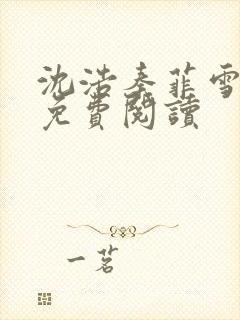 沈浩秦菲雪
免費閱讀
一茗